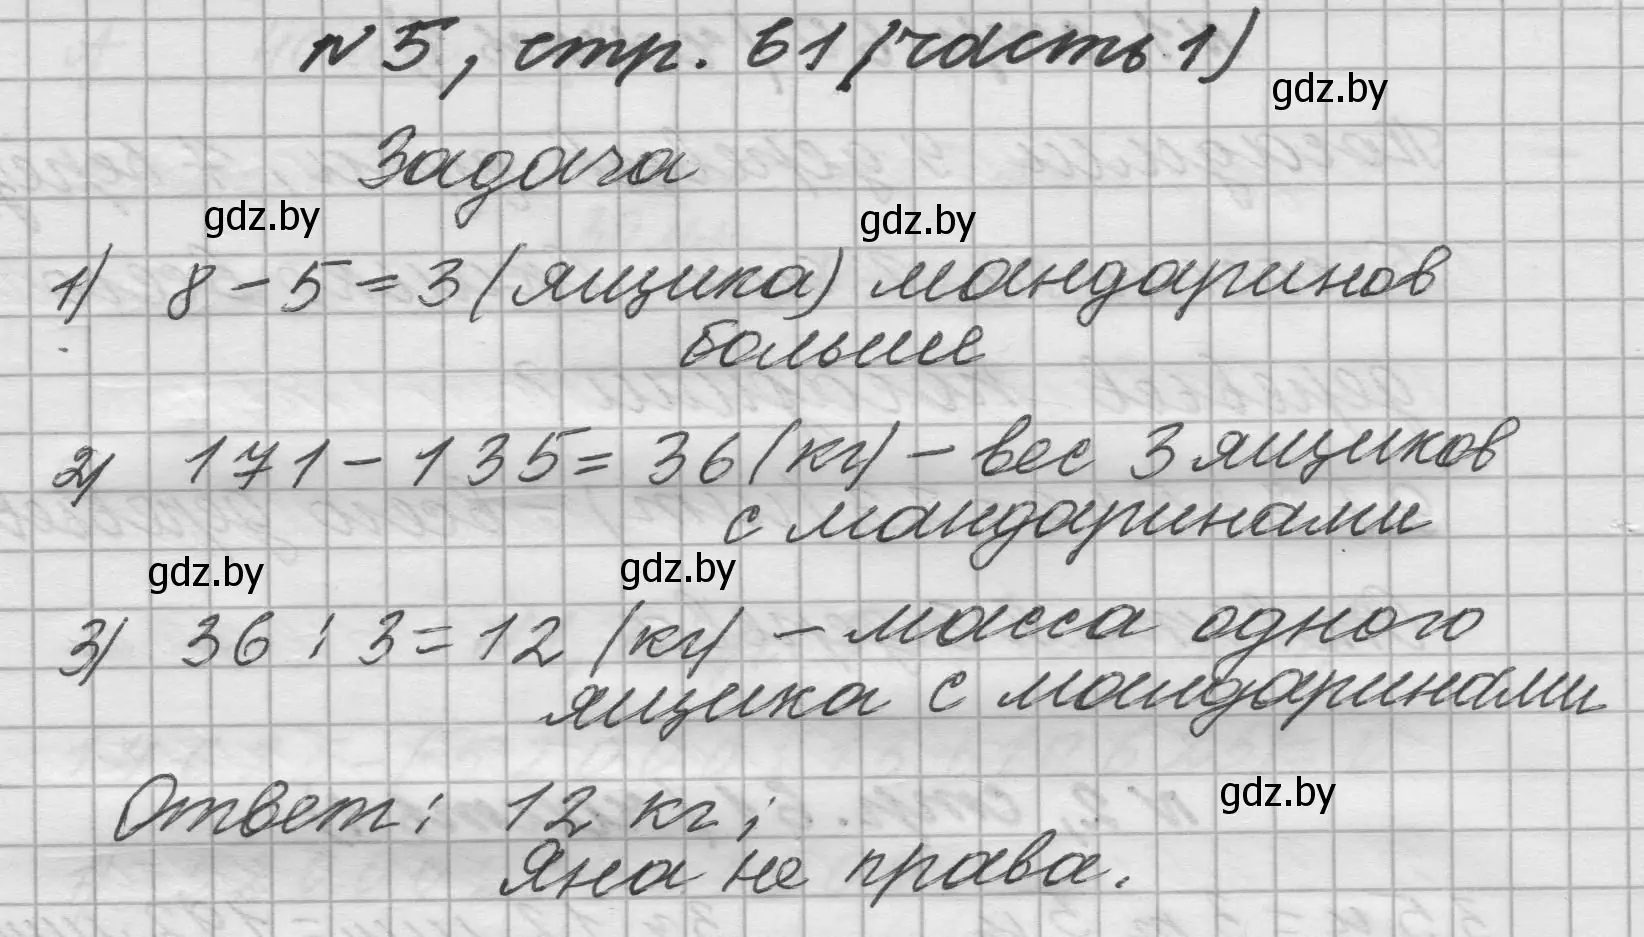 №5, стр. 61 (часть 1)
gdz.by
Задача
gdz.by gdz.by
1) 8 - 5 = 3 (ящика) мандаринов
больше
2) 171 - 135 = 36 (кг) - вес 3 ящиков
с мандаринами
gdz.by gdz.by
3) 36 : 3 = 12 (кг) - масса одного
ящика с мандаринами
gdz.by
Ответ: 12 кг;
Яна не права.